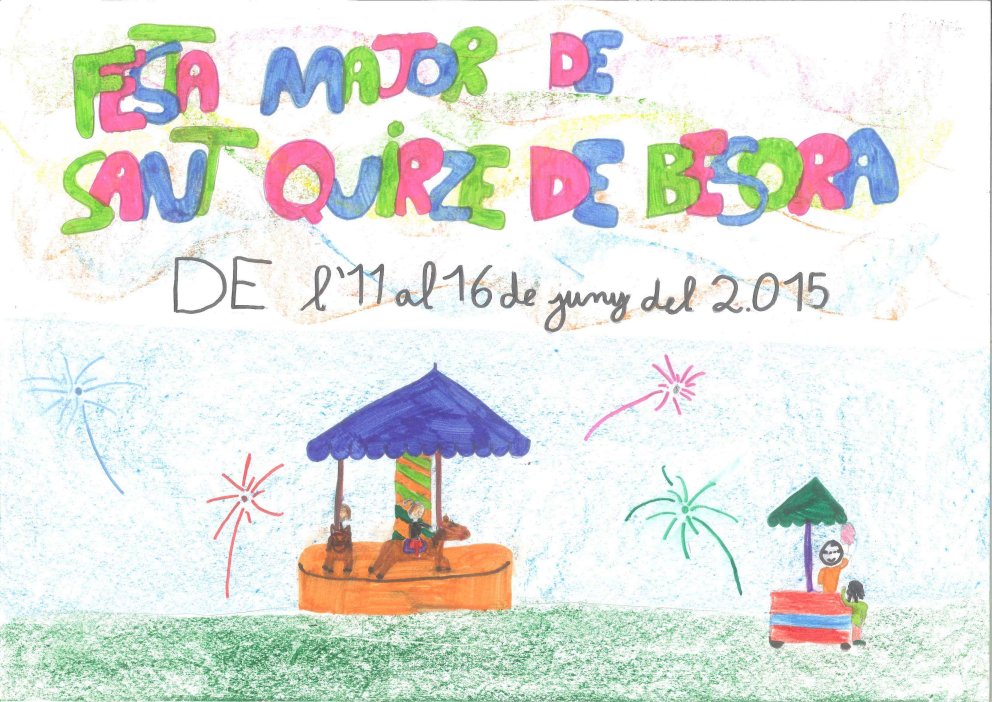 FESTA MAJOR DE
SANT QUiRZE DE BESORA
DE l'11 al 16 de juny del 2.015